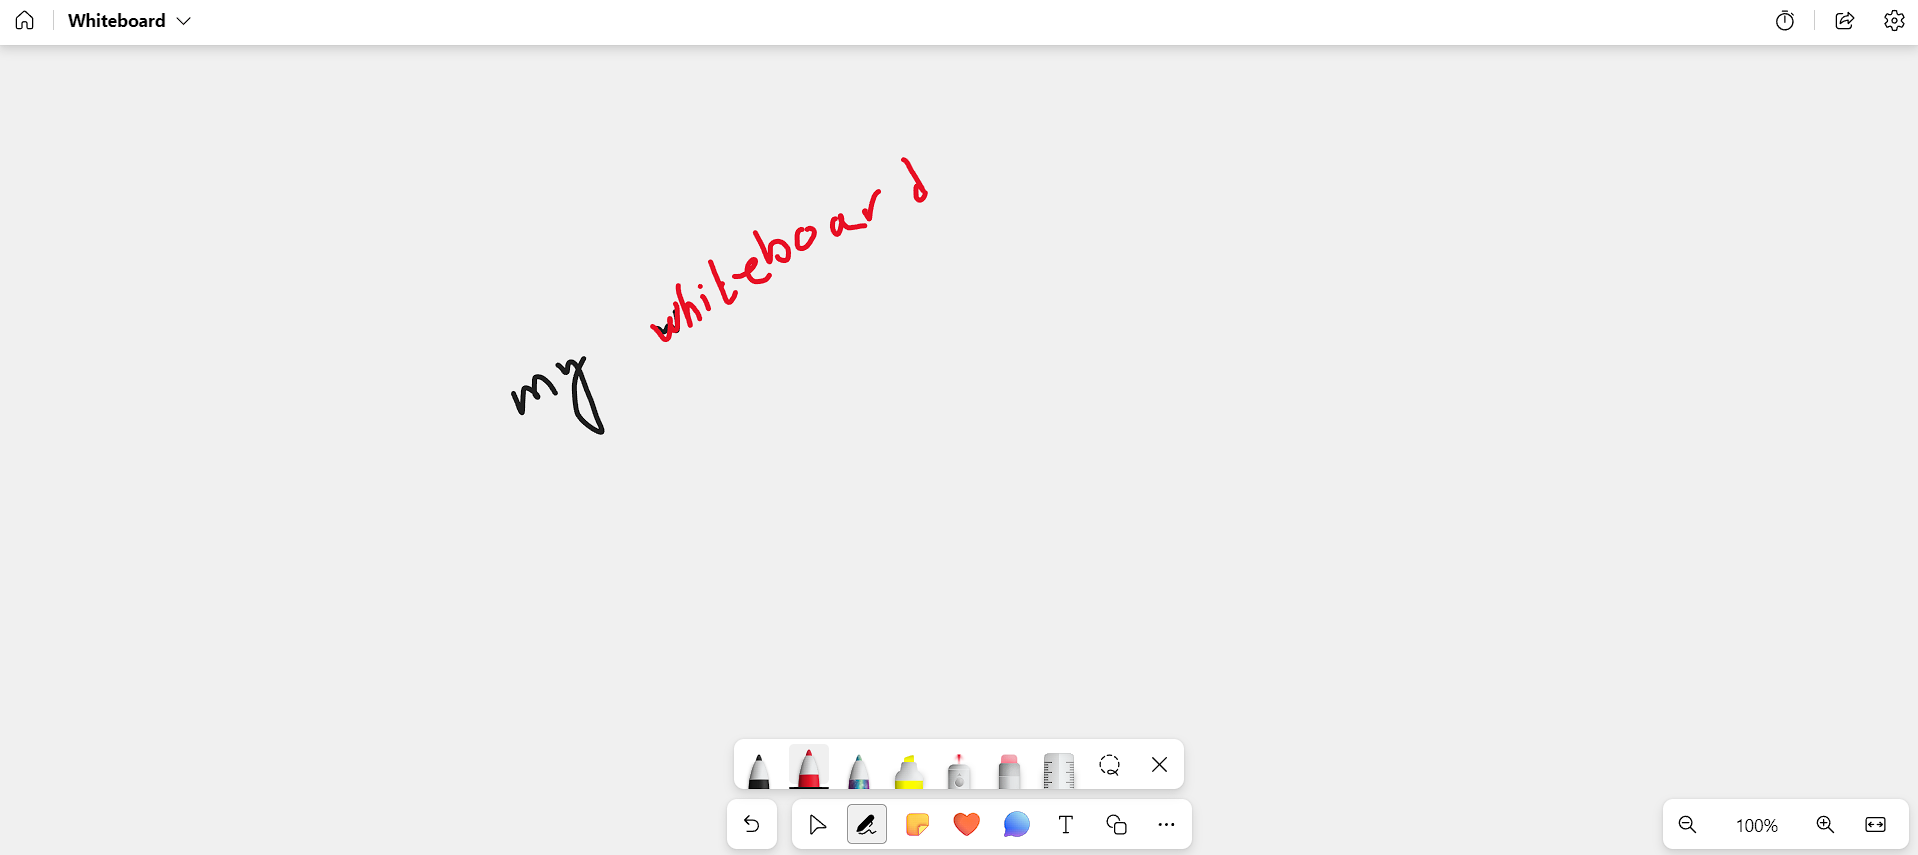 Whiteboard
my whiteboard
100%